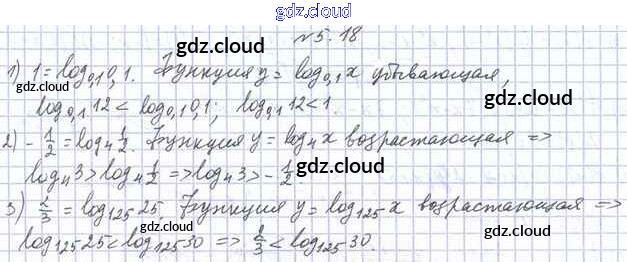 gdz.cloud
№5.18
gdz.cloud gdz.cloud
1) 1 = log₀,₁0,1. Функция y = log₀,₁x убывающая,
log₀,₁12 < log₀,₁0,1; log₀,₁12 < 1
gdz.cloud
2) -1/2 = log₄1/2. Функция y = log₄x возрастающая =>
log₄3 > log₄1/2 => log₄3 > -1/2.
gdz.cloud
gdz.cloud
3) 2/3 = log₁₂₅25. Функция y = log₁₂₅x возрастающая =>
log₁₂₅25 < log₁₂₅30 => 2/3 < log₁₂₅30.
gdz.cloud gdz.cloud